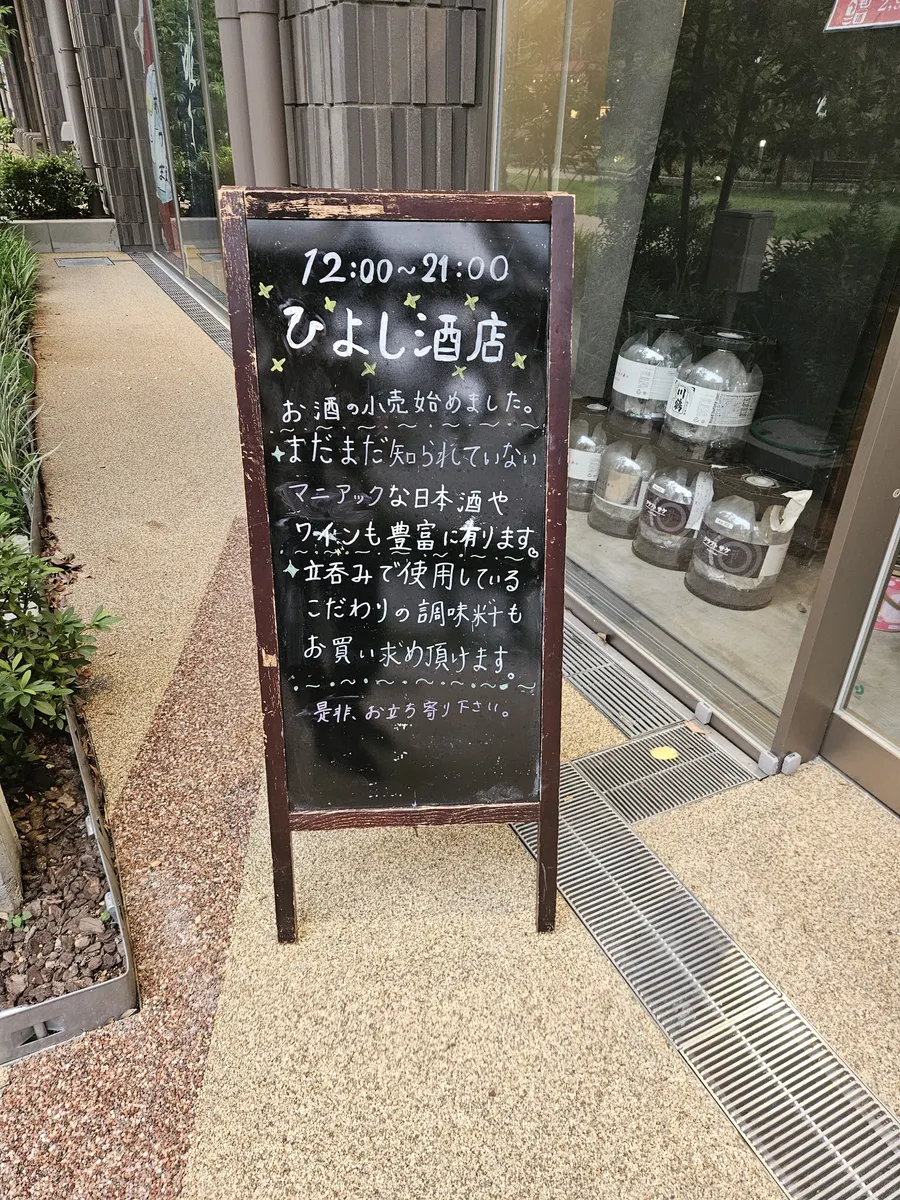 12:00~21:00
ひよし酒店
お酒の小売始めました。
まだまだ知られていない
マニアックな日本酒や
ワインも豊富に有ります。
立呑みで使用している
こだわりの調味料も
お買い求め頂けます。
是非、お立ち寄り下さい。
川鶴